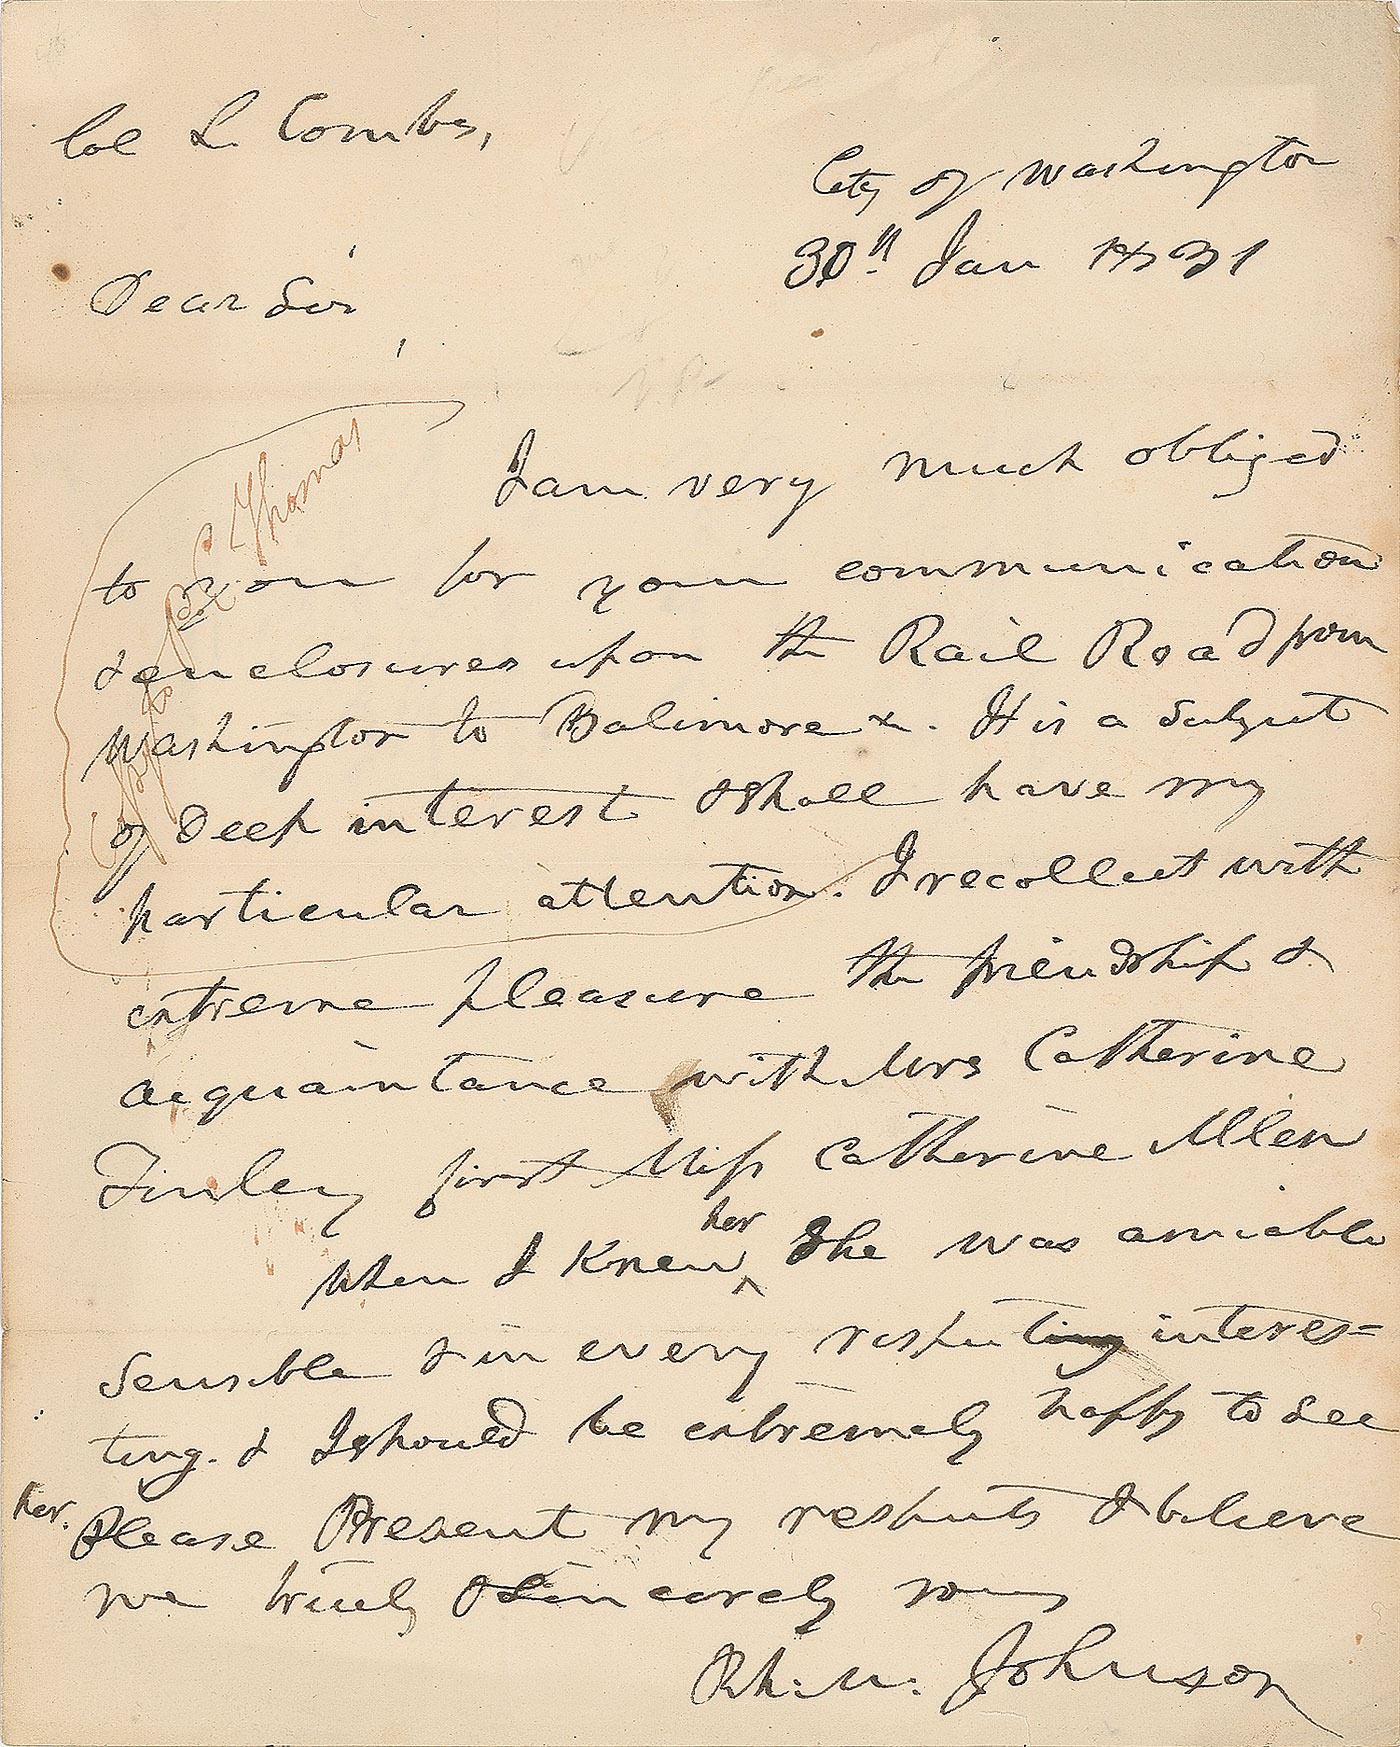 Col L. Combs,
City of Washington
30th Jan 1831
Dear Sir,
I am very much obliged
to you for your communication
& enclosures upon the Rail Road from
Washington to Balimore &. It is a Subject
of Deep interest & shall have my
particular attention. I recollect with
extreme pleasure the friendship &
acquaintance with Mrs Catherine
Finley first Miss Catherine Allen
When I Knew her She was amiable
Sensible & in every respect interes=
ting. & I should be extremely happy to See
her. Please Present my respects & believe
me truly & Sincerely yours
Rh: M: Johnson
Thomas